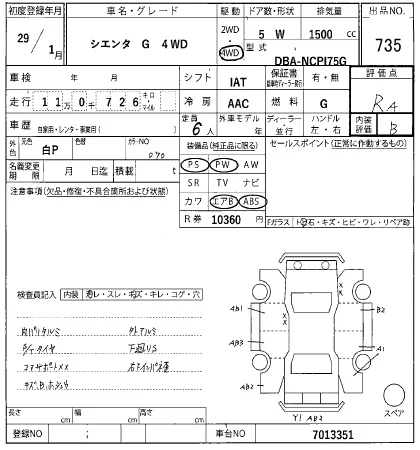 初度登録年月 車名・グレード 駆動 ドア数・形状 排気量 出品NO.
29 / 1月 シエンタ G 4WD 2WD・4WD 5 W 1500 cc 735
型式 DBA-NCP175G
車検 年 月 シフト IAT 保証書 有・無 評価点
走行 11万0千726 キロ・マイル 冷房 AAC 燃料 G RA
車歴 自家用・レンタ・事業用( ) 定員 6人 外車モデル 年 ディーラー・並行 ハンドル 左・右 内装評価 B
外色 元色 白P 色替 カラーNO 070 装備品(純正品に限る) セールスポイント(正常に作動するもの)
名義変更期限 月 日迄 積載 t PS PW AW
注意事項(欠品・修復・不具合箇所および状態) SR TV ナビ
カワ エアB ABS
R券 10360 円 Fガラス( トビ石・キズ・ヒビ・ワレ・リペア跡
検査員記入 内装 スレ・スレ・毛ズ・キレ・コゲ・穴
Ab1 B2
Ab3 A1
Ab2
スペア
Y1 AB2
長さ cm 幅 cm 高さ cm
登録NO ; 車台NO 7013351